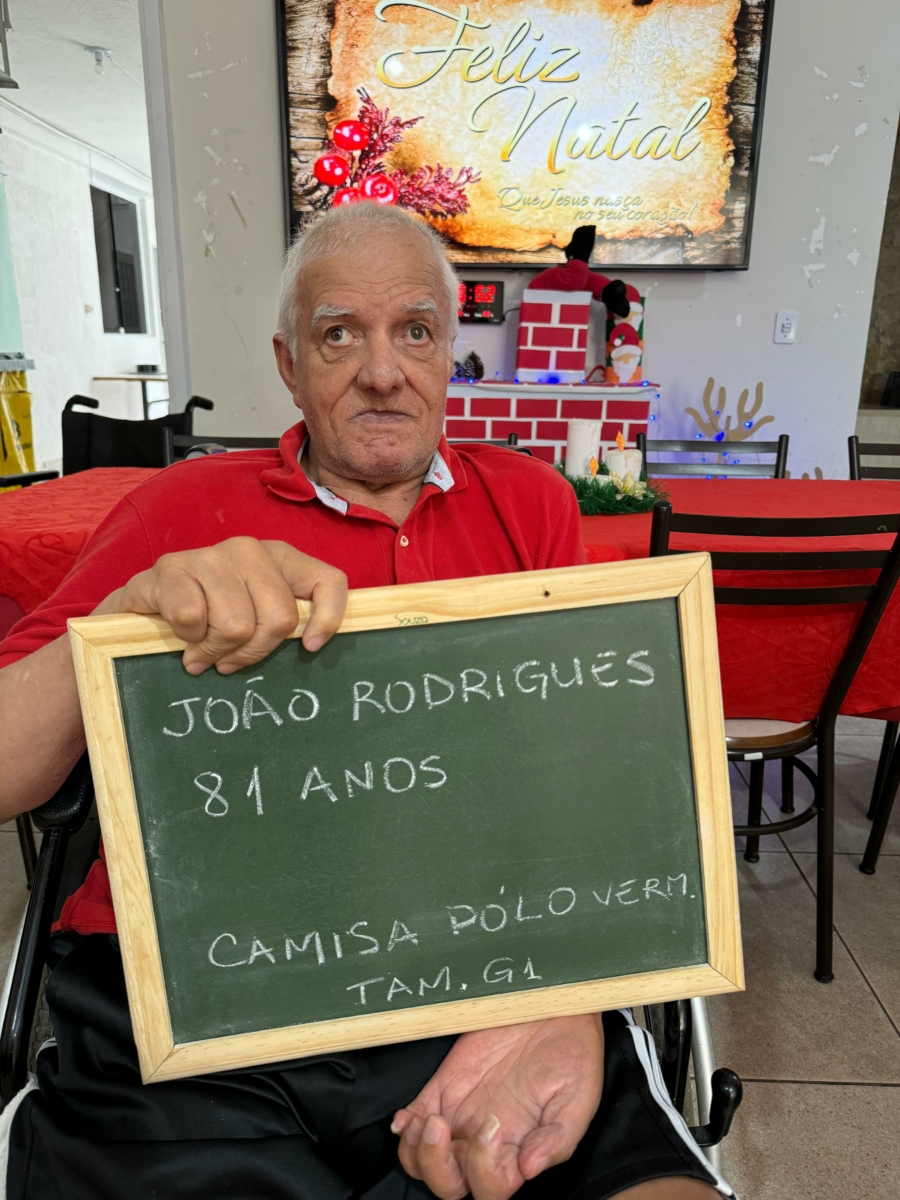 Feliz
Natal
Que Jesus nasça
no seu coração!
Souza
JOÃO RODRIGUES
81 ANOS
CAMISA PÓLO VERM.
TAM. G1